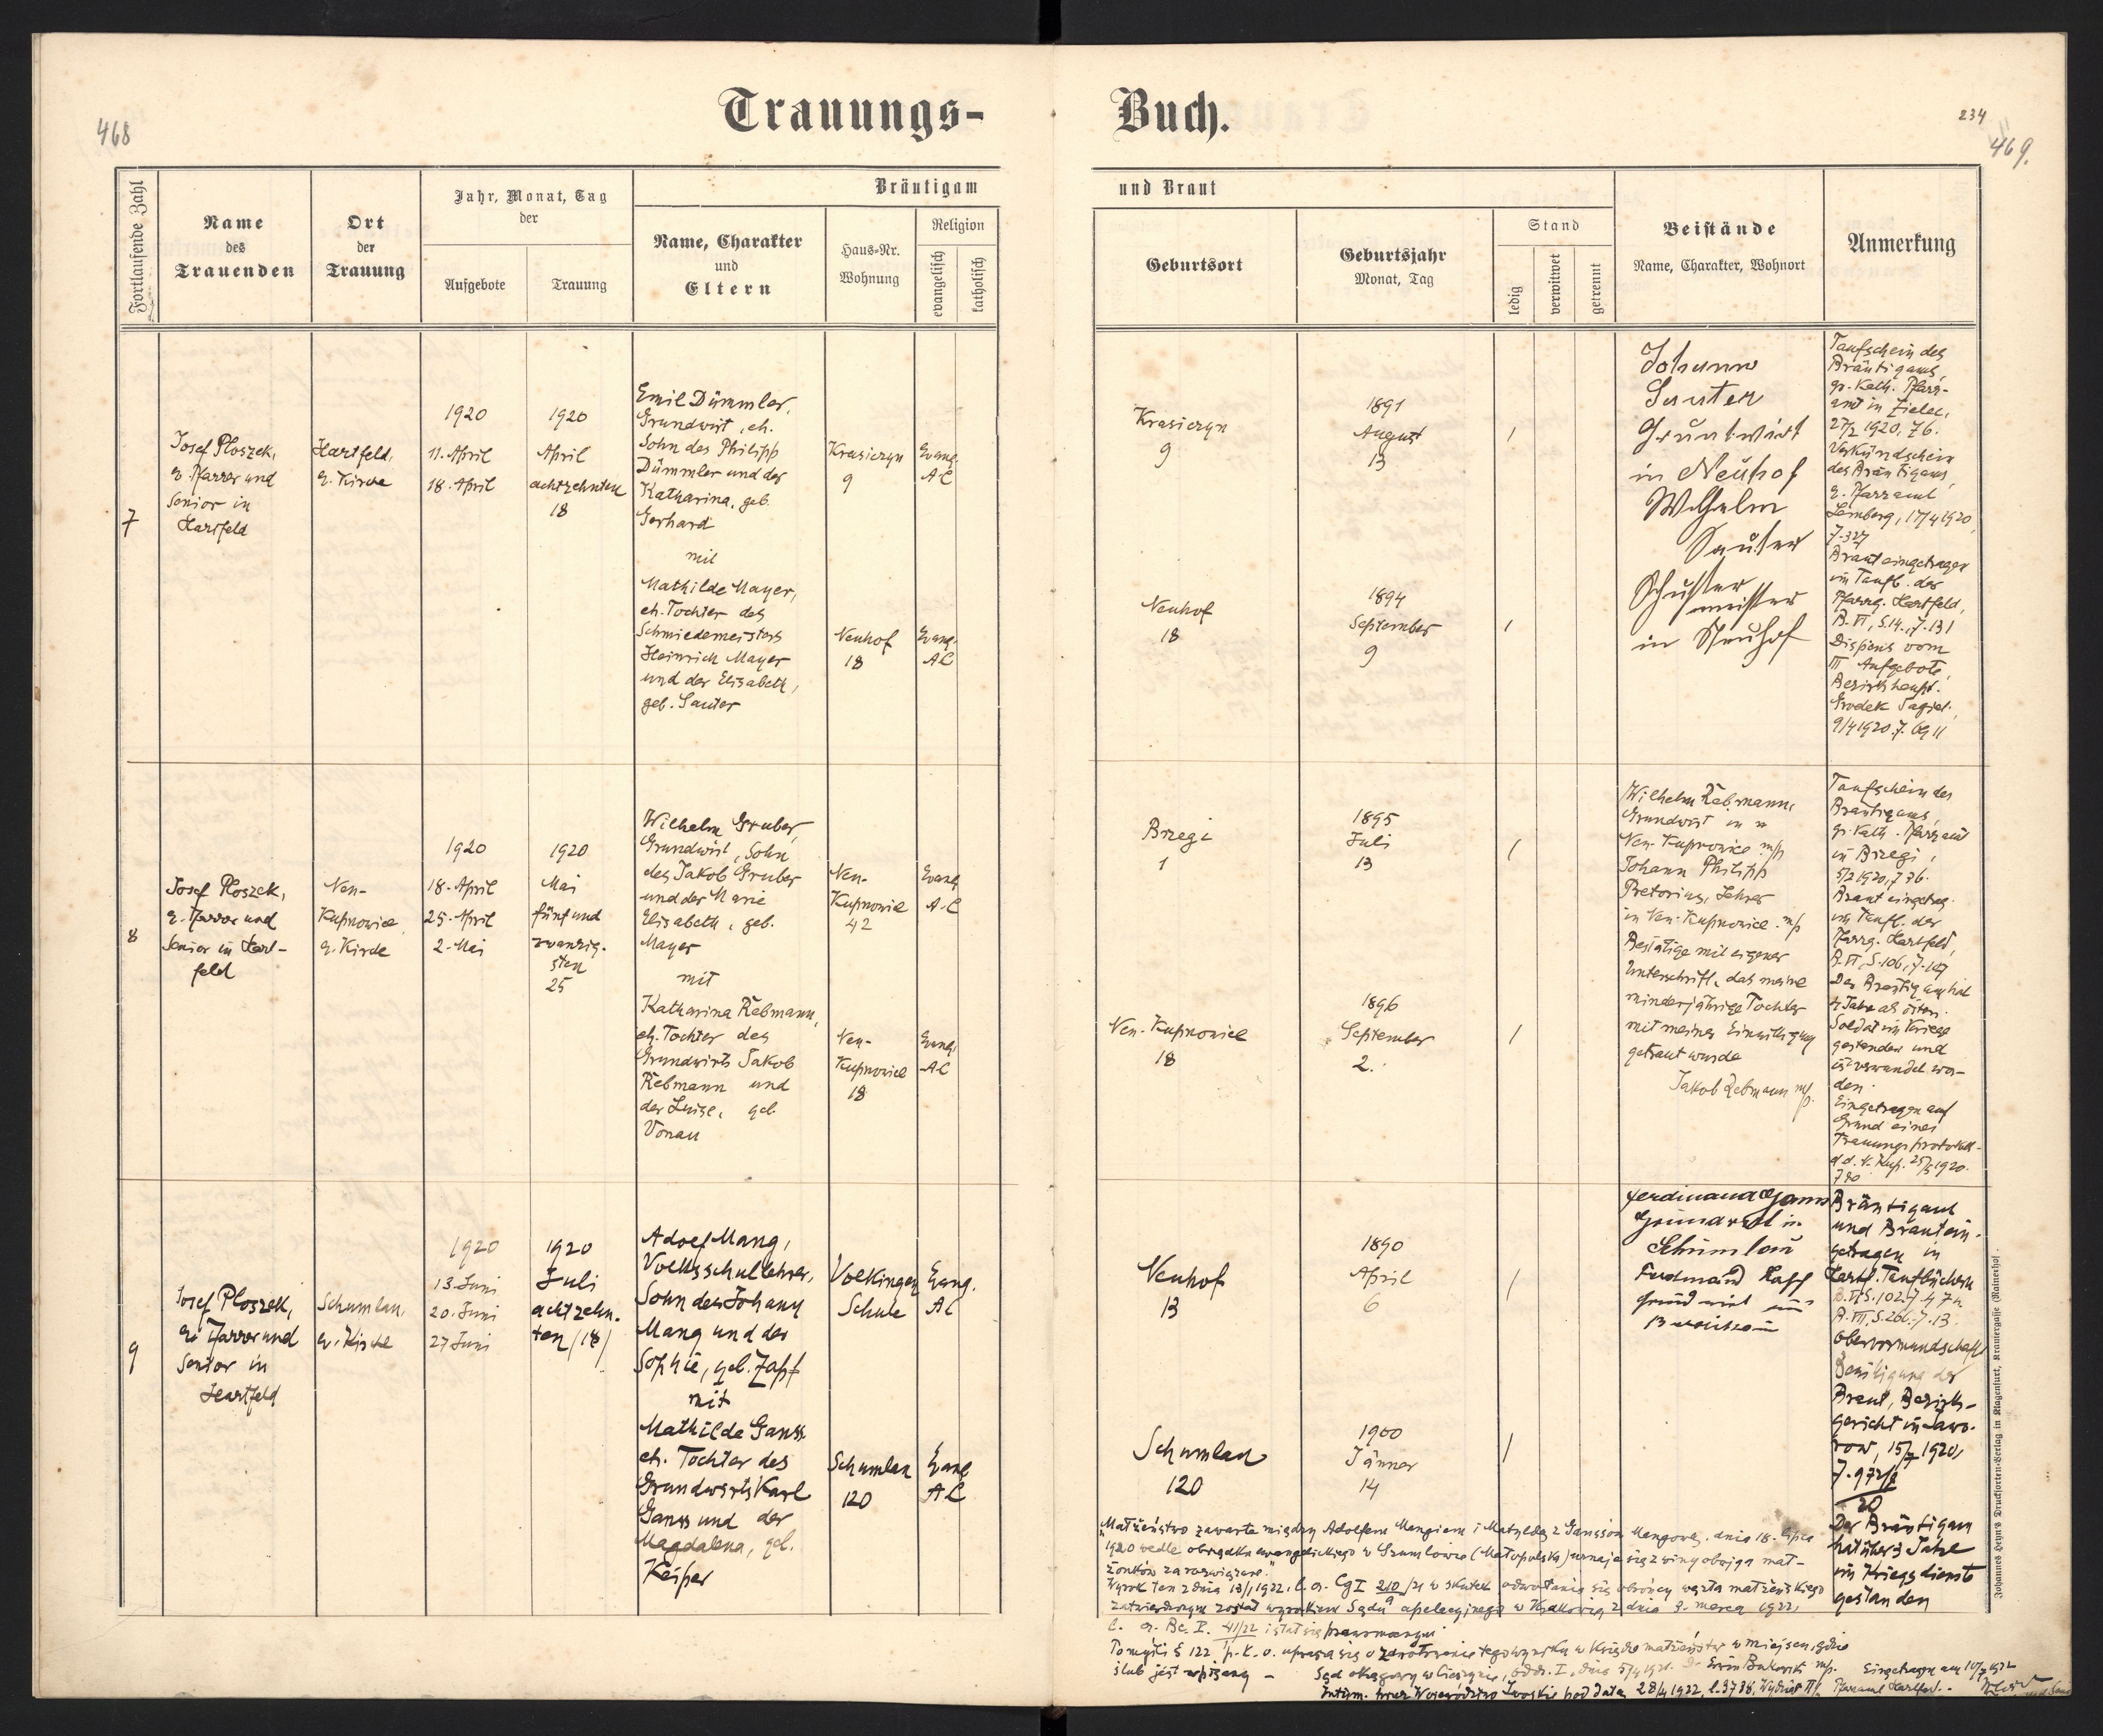 468
Trauungs-
Fortlaufende Zahl
Name
des
Trauenden
Ort
der
Trauung
Jahr, Monat, Tag
der
Aufgebote
Trauung
Bräutigam
Name, Charakter
und
Eltern
Haus-Nr.
Wohnung
Religion
evangelisch
katholisch
7
Josef Ploszek,
e. Pfarrer und
Senior in
Hartfeld
Hartfeld,
e. Kirche
1920
11. April
18. April
1920
April
achtzehnten
18
Emil Dümmler,
Grundwirt, eh.
Sohn des Philipp
Dümmler und der
Katharina, geb.
Gerhard
mit
Mathilde Mayer,
eh. Tochter des
Schmiedemeisters
Heinrich Mayer
und der Elisabeth,
geb. Sauter
Krasiczyn
9
Evang.
AC
Neuhof
18
Evang.
AC
8
Josef Ploszek,
e. Pfarrer und
Senior in Hart-
feld
Neu-
Kupnowice
e. Kirche
1920
18. April
25. April
2. Mai
1920
Mai
fünf und
zwanzig-
sten
25
Wilhelm Gruber,
Grundwirt, Sohn
des Jakob Gruber
und der Marie
Elisabeth, geb.
Mayer
mit
Katharina Rebmann,
eh. Tochter des
Grundwirts Jakob
Rebmann und
der Luise, geb.
Vonau
Neu-
Kupnowice
42
Evang.
A.C
Neu-
Kupnowice
18
Evang.
AC
9
Josef Ploszek,
ev. Pfarrer und
Senior in
Hartfeld
Schumlau,
ev. Kirche
1920
13. Juni
20. Juni
27. Juni
1920
Juli
achtzehn-
ten (18)
Adolf Mang,
Volksschullehrer,
Sohn des Johann
Mang und der
Sophie, geb. Zapf
mit
Mathilde Ganss
eh. Tochter des
Grundwirts Karl
Ganss und der
Magdalena, geb.
Keiper
Schule
Evang.
AC
Schumlau
120
Evang
AC
Buch.
234
469.
und Braut
Geburtsort
Geburtsjahr
Monat, Tag
Stand
ledig
verwitwet
getrennt
Beistände
Name, Charakter, Wohnort
Anmerkung
Krasiczyn
9
1891
August
13
/
Neuhof
18
1894
September
9
/
Johann
Sauter
Gruntwirt
in Neuhof
Wilhelm
Sauter
Schuster
meister
in Neuhof
Taufschein des
Bräutigams,
gr. kath. Pfarr-
amt in
27/2 1920, 76.
Verkündschein
des Bräutigams,
e. Pfarramt
Lemberg, 17/4 1920,
Z. 327
Braut eingetragen
im Taufb. der
Pfarrg. Hartfeld,
B. VI, S. 14., Z. 131
Dispens vom
III Aufgebote,
Bezirkshaupt.
Grodek Jagiel.
9/4 1920. Z. 6911
Brzegi
1
1895
Juli
13
/
Neu-Kupnowice
18
1896
September
2.
/
Wilhelm Rebmann,
Grundwirt in
Neu-Kupnowice m/p
Johann Philipp
Pretorius, Lehrer
in Neu-Kupnowice. m/p
Bestätige mit eigener
Unterschrift, das meine
minderjährige Tochter
mit meiner Einwilligung
getraut wurde
Jakob Rebmann m/p.
Taufschein des
Bräutigams,
gr. kath. Pfarramt
in Brzegi,
5/2 1920, Z 36.
Braut eingetrag.
im Taufb. der
Pfarrg. Hartfeld,
B. VI, S. 106, Z. 107
Der Bräutigam hat
4 Jahre als öster.
Soldat im Kriege
gestanden und
ist verwundet wor-
den.
Eingetragen auf
Grund eines
Trauungsprotokoll-
d. d. N. Kup. 25/5 1920.
Neuhof
13
1890
April
6
/
Schumlau
120
1900
Jänner
14
/
Ferdinand Ganss
Grundwirt in
Schumlau
Ferdinand
Grundwirt
Bräutigam
und Braut ein-
getragen in
Hartf. Taufbüchern
Obervormundschaftl
der
Braut, Bezirks-
gericht in Jawo-
row, 15/7 1920,
20
Der Bräutigam
hat über 3 Jahre
im Kriegsdienste
gestanden
„Małżeństwo zawarte między Adolfem Mangiem i Matyldą z Ganssów Mangową, dnia 18. lipca
1920 wedle obrządku ewangelickiego w Szumlowie (Małopolska) uznaje się z winy obojga mał-
żonków za rozwiązane.
Wyrok ten z dnia 13/1 1922, l. cz. Cg I 210/21 w skutek odwołania się obrońcy węzła małżeńskiego
zatwierdzonym został wyrokiem Sądu apelacyjnego w Krakowie z dnia 3. marca 1922,
l. cz. Bc. I. 41/22 i stał się prawomocnym.
Po myśli § 122 p. k. o. uprasza się o tego wyroku w księdze małżeństw w miejscu, gdzie
ślub jest wpisany –
Sąd okręgowy w Cieszynie, oddz. I, dnia
Intym. przez Województwo Lwoskie pod data 28/4 1922, l. 3738, Wydział II/
Eingetragen am 10/7 1922
Pfarramt Hartfeld. –
Johannes Heyn's Druckforten-Verlag in Klagenfurt, Kramergasse (Rainerhof).